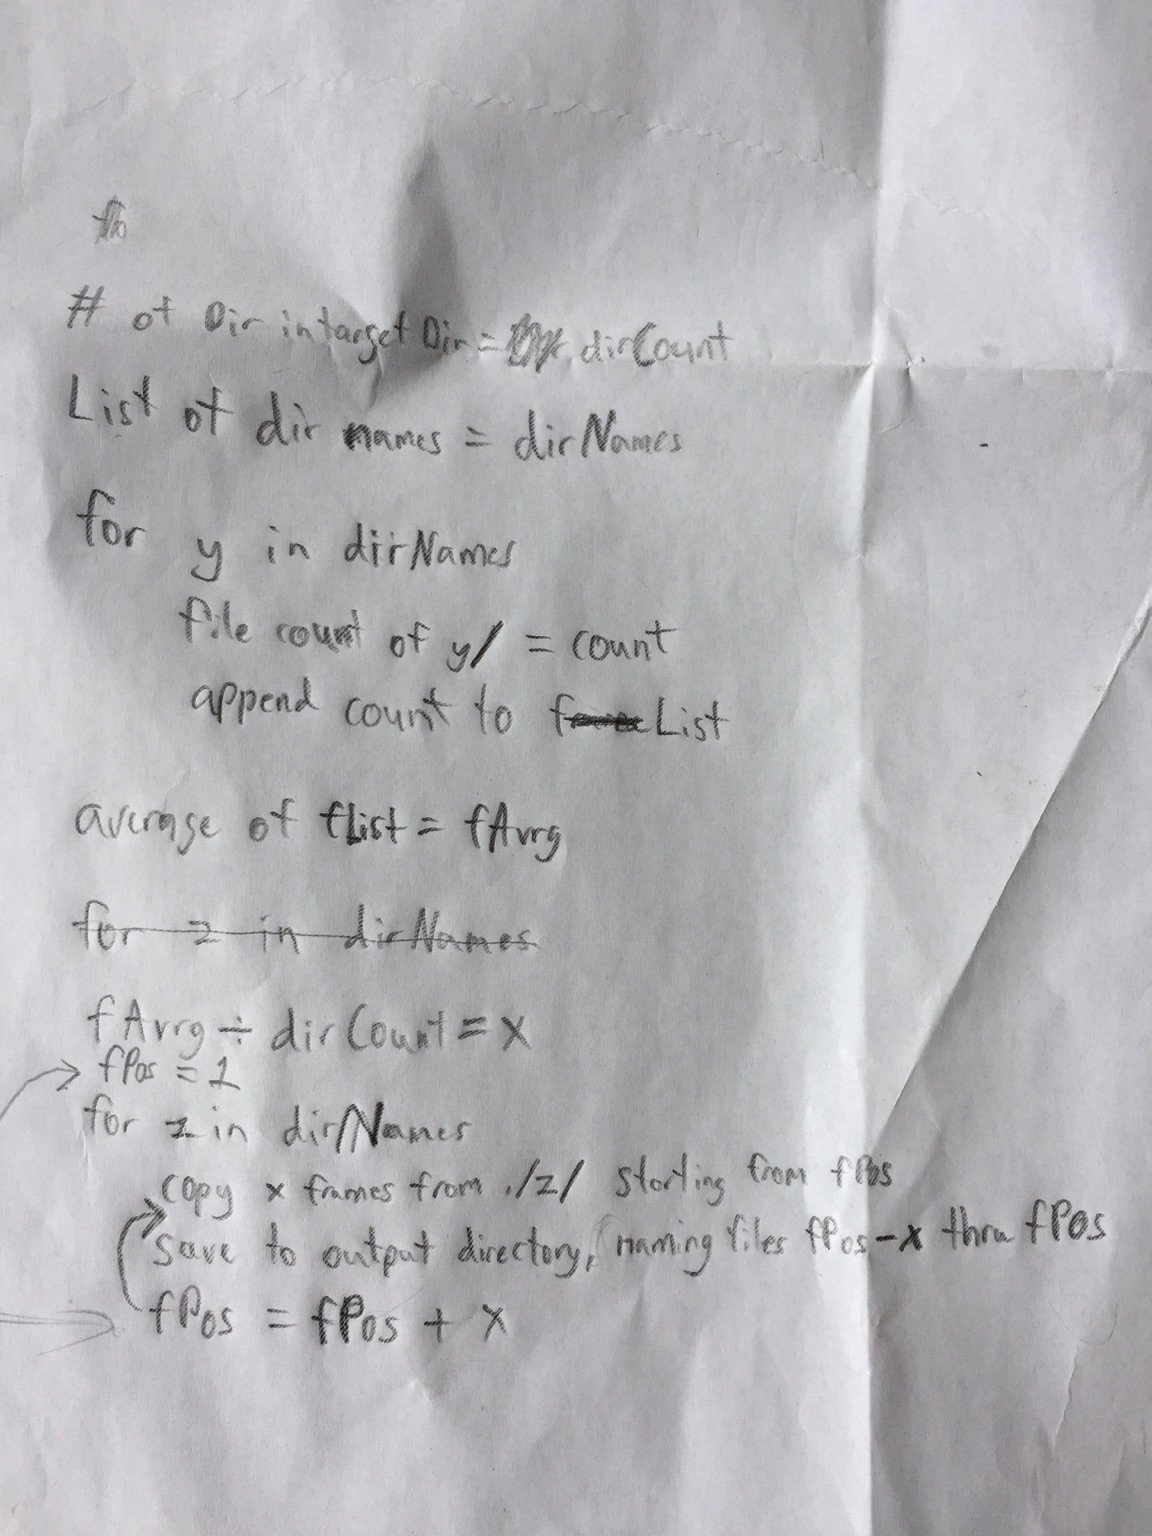 # of Dir in target Dir = dirCount
List of dir names = dirNames
for y in dirNames
file count of y/ = count
append count to fList
average of fList = fAvrg
for z in dirNames
fAvrg ÷ dirCount = x
fPos = 1
for z in dirNames
copy x frames from ./z/ starting from fPos
save to output directory, naming files fPos-x thru fPos
fPos = fPos + x